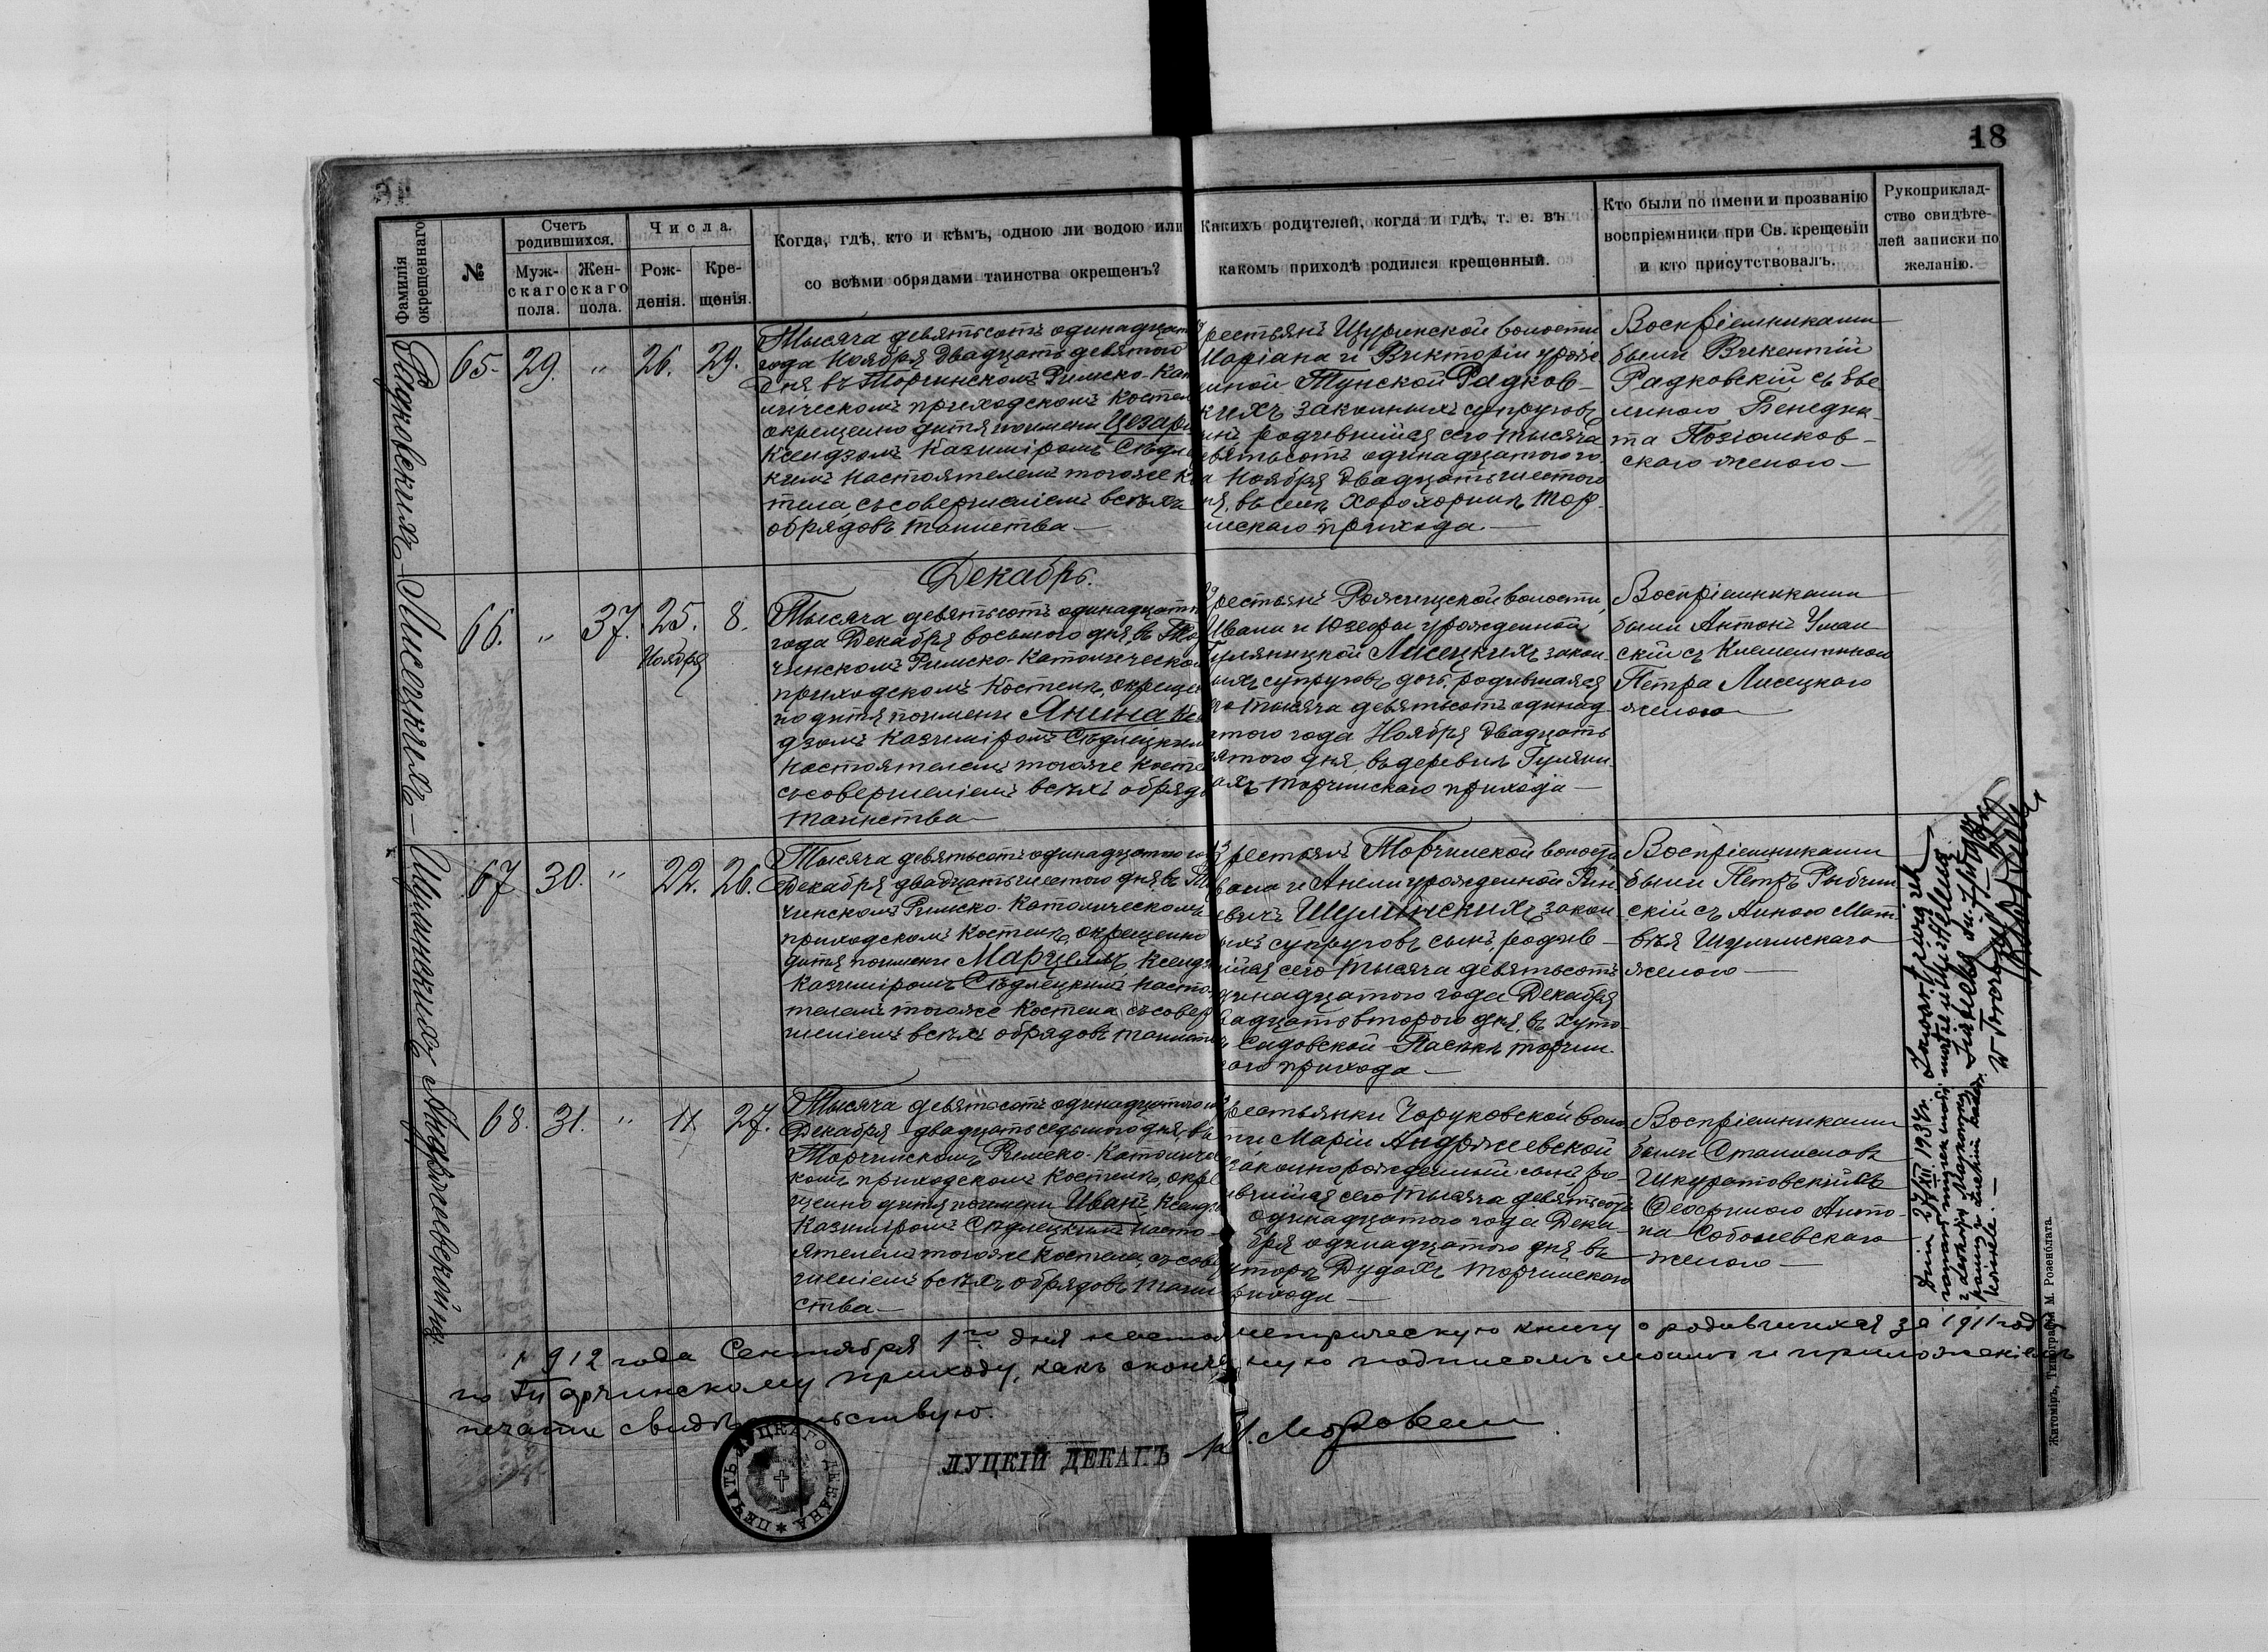 18
Фамилія
окрещеннаго
№
Счетъ
родившихся.
Муж-
скаго
пола.
Жен-
скаго
пола.
Числа.
Рож-
денія.
Кре-
щенія.
Когда, гдѣ, кто и кѣмъ, одною ли водою или
со всѣми обрядами таинства окрещенъ?
Какихъ родителей, когда и гдѣ, т. е. въ
какомъ приходѣ родился крещенный.
Кто были по имени и прозванію
воспріемники при Св. крещеніи
и кто присутствовалъ.
Рукоприклад-
ство свидѣте-
лей записки по
желанію.
Радковскихъ
65. 29. " 26. 29.
Тысяча девятьсотъ одинадцат
года Ноября двадцать девятого
дня въ Торчинскомъ Римско-Кат
лическомъ приходскомъ Костел
окрещено дитя поимени Цезари
Ксендзомъ Казиміромъ Сѣдле
кимъ Настоятелемъ тогоже К
тела, съ совершеніемъ всѣхъ
обрядовъ таинства
рестьянъ Щуринской волости
Маріана и Викторіи урож
нной Тунской Радков-
кихъ законныхъ супруговъ
ынъ родившійся сего тысяча
евятьсотъ одинадцатого го
а Ноября двадцать шестого
ня, въ селѣ Хорохоринѣ Тор
инскаго прихода.
Воспріемниками
были Викентій
Радковскій съ Эве
линою Бенедик-
та Позіомков-
скаго женою
Декабрь.
Лисецкихъ
66. " 37. 25. 8.
Ноября
Тысяча девятьсотъ одинадцат
года Декабря восьмого дня, въ То
чинскомъ Римско-Католическо
приходскомъ Костелѣ, окреще
но дитя поимени Янина Ксе
дзомъ Казиміромъ Сѣдлецким
Настоятелемъ тогоже Косте
съ совершеніемъ всѣхъ обрядо
таинства
рестьянъ Рожищской волости,
Ивана и Юзефы урожденной
Гуляницкой Лисецкихъ закон
ыхъ супруговъ дочь, родившаяся
го тысяча девятьсотъ одинад
атого года Ноября двадцать
ятого дня, въ деревнѣ Гуляни
ахъ Торчинскаго прихода
Воспріемниками
были Антонъ Уман
скій съ Клементиною
Петра Лисецкого
женою
Шулинскихъ
67. 30. " 22. 26.
Тысяча девятьсотъ одинадцатого го
Декабря двадцать шестого дня, въ То
чинскомъ Римско-Католическомъ
приходскомъ Костелѣ, окрещенно
дитя поимени Марцелъ Ксендз
Казиміромъ Сѣдлецкимъ Насто
телемъ тогоже Костела съ совер
шеніемъ всѣхъ обрядовъ таинст
рестьянъ Торчинской волости,
вана и Анели урожденной
евичъ Шулинскихъ закон
ыхъ супруговъ сынъ, родив-
шійся сего тысяча девятьсотъ
динадцатого года Декабря
вадцать второго дня, въ хуто
Садовской Пасѣкѣ Торчин
ого прихода
Воспріемниками
были Петръ Рыбчин
скій съ Анною Мат
вѣя Шулинскаго
женою
68. 31. " 11. 27.
Тысяча девятьсотъ одинадцатого го
Декабря двадцать седьмого дня, въ
Торчинскомъ Римско-Католиче
комъ приходскомъ Костелѣ, окре
щенно дитя поимени Иванъ Ксендз
Казиміромъ Сѣдлецкимъ Насто-
ятелемъ тогоже Костела, съ сове
шеніемъ всѣхъ обрядовъ таин
ства
рестьянки Чоруковской воло
ти Маріи Андржеевской
законнорожденный сынъ, ро-
ившійся сего тысяча девятьсотъ
одинадцатого года Дека
бря одинадцатого дня въ
уторѣ Дудахъ Торчинскаго
рихода
Воспріемниками
были Станиславъ
Шкуратовскій съ
Антo-
на Соболевскаго
женою
dnia 27/XII 1934 r. zawarł związek
kościele
1912 года Сентября 1го дня настоя метрическую книгу о родившихся за 1911 годъ
по Торчинскому приходу, какъ оконч ную подписомъ моимъ и приложеніемъ
печати свидѣтельствую.
ПЕЧАТЬ ЛУЦКАГО ДЕКАНА
ЛУЦКІЙ ДЕКАНЪ
Житоміръ, Типографія М. Розенблата.